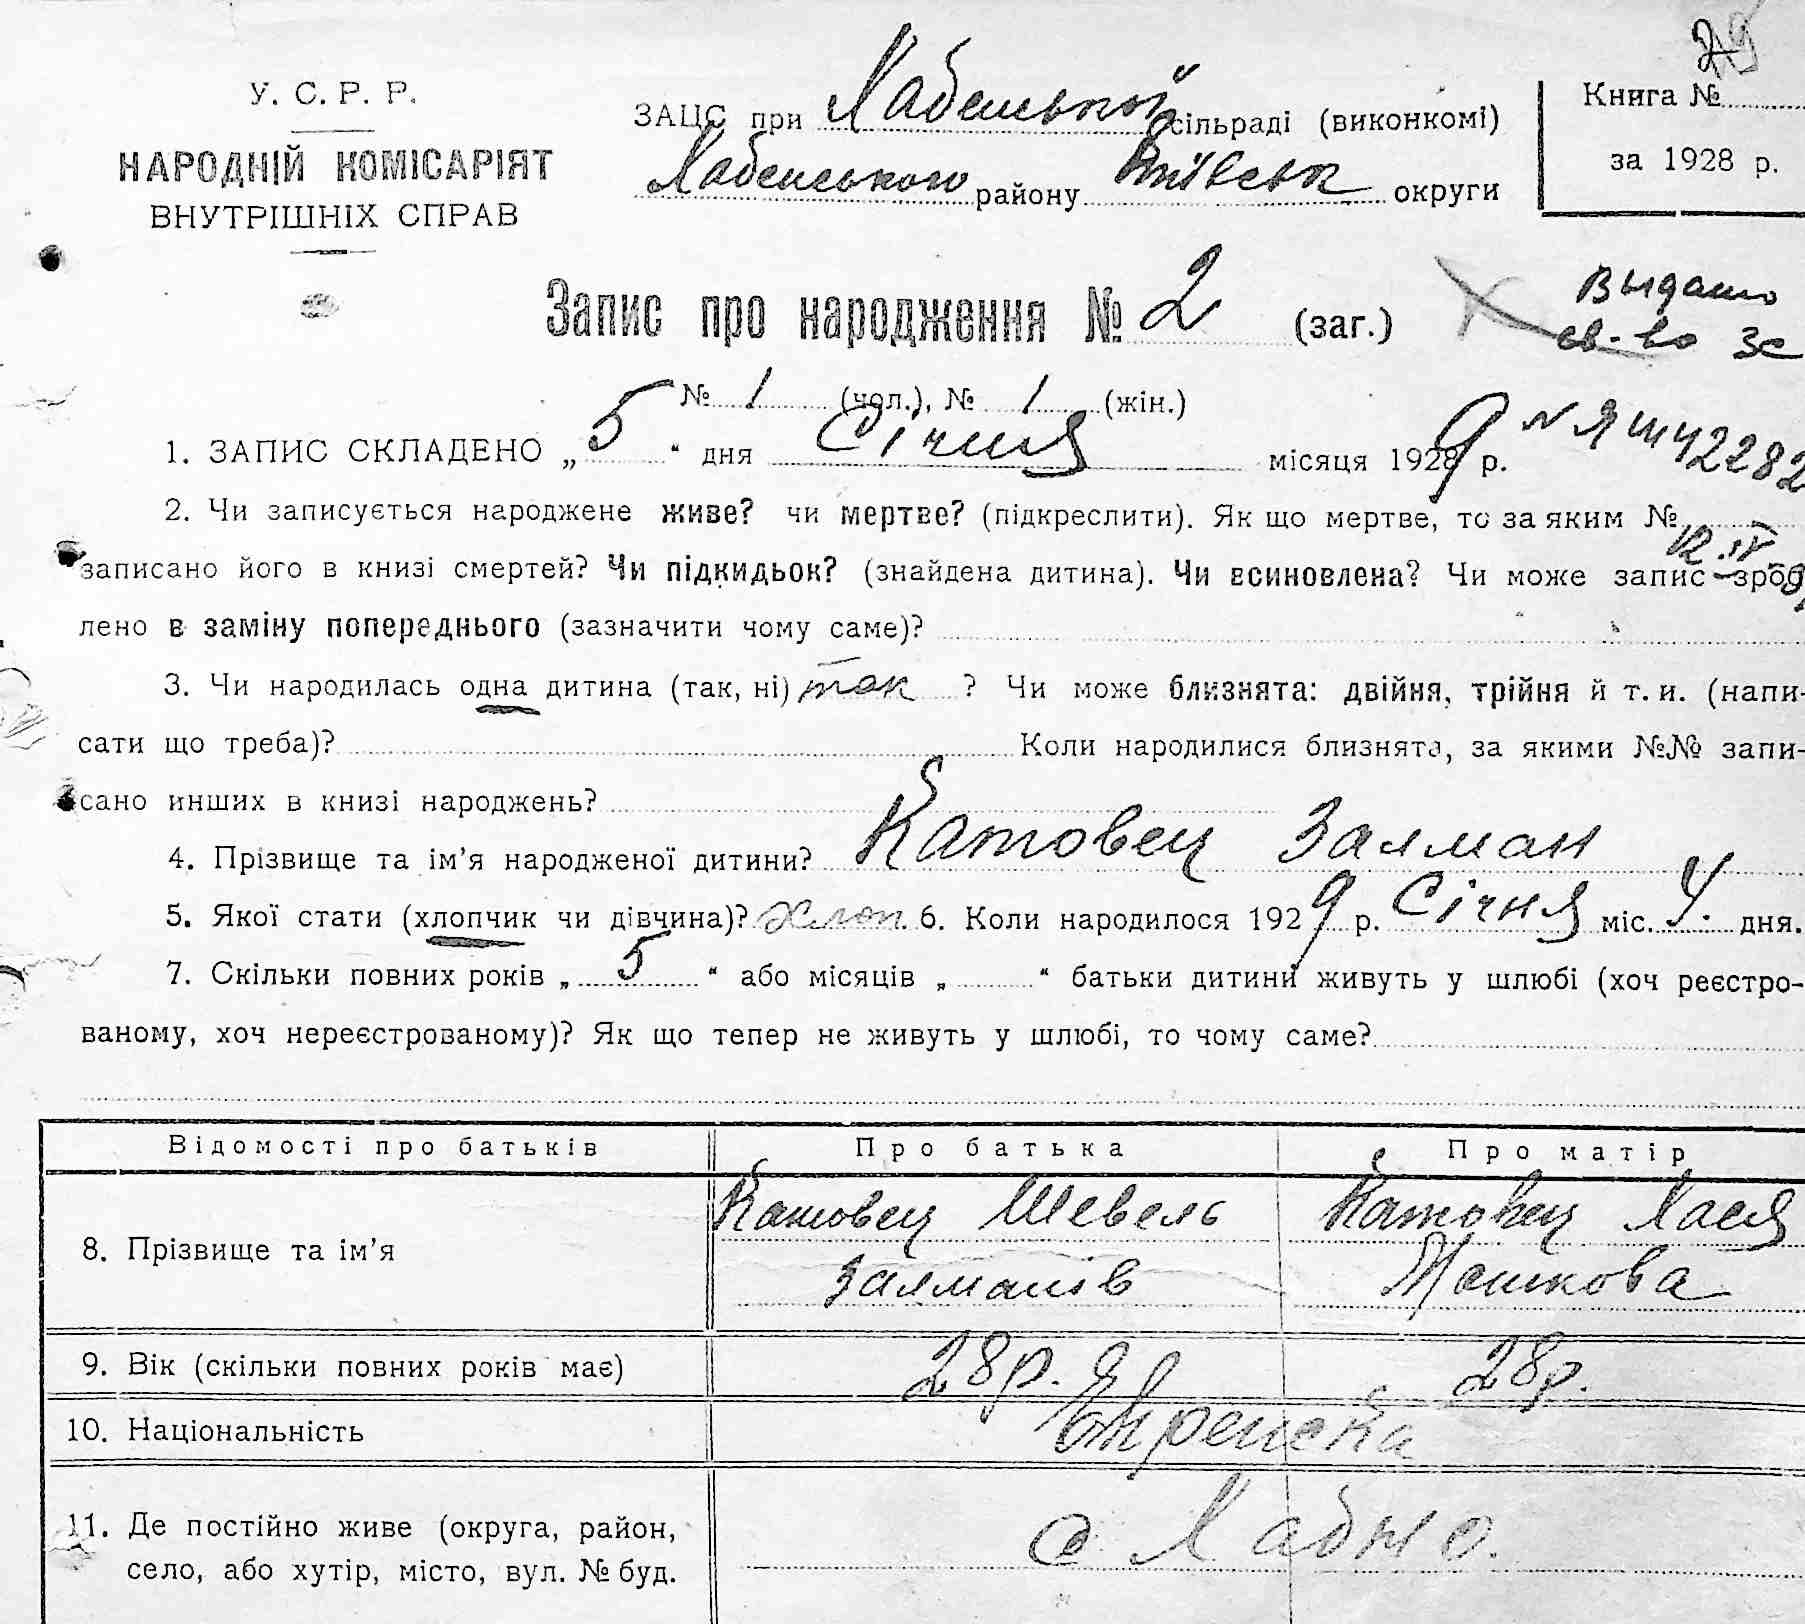 29
У. С. Р. Р.
НАРОДНІЙ КОМІСАРІЯТ
ВНУТРІШНІХ СПРАВ
ЗАЦС при Хабенській сільраді (виконкомі)
Хабенського району округи
Книга №
за 1928 р.
Запис про народження № 2 (заг.)
Выдано
св-во
№ 1 (чол.), № 1 (жін.)
1. ЗАПИС СКЛАДЕНО „ 5 “ дня Січня місяця 1929 р.
2. Чи записується народжене живе? чи мертве? (підкреслити). Як що мертве, то за яким №
записано його в книзі смертей? Чи підкидьок? (знайдена дитина). Чи всиновлена? Чи може запис зроб
лено в заміну попереднього (зазначити чому саме)?
3. Чи народилась одна дитина (так, ні) так ? Чи може близнята: двійня, трійня й т. и. (напи-
сати що треба)? Коли народилися близнята, за якими №№ запи-
сано инших в книзі народжень?
4. Прізвище та ім’я народженої дитини? Катовец Залман
5. Якої стати (хлопчик чи дівчина)? хлоп. 6. Коли народилося 1929 р. Січня міс. 4. дня.
7. Скільки повних років „ 5 “ або місяців „ “ батьки дитини живуть у шлюбі (хоч реєстро-
ваному, хоч нереєстрованому)? Як що тепер не живуть у шлюбі, то чому саме?
Відомості про батьків Про батька Про матір
8. Прізвище та ім’я Катовец Шевель Катовец Хася
Залманів Мошкова
9. Вік (скільки повних років має) 28р. 28р.
10. Національність Єврейська
11. Де постійно живе (округа, район,
село, або хутір, місто, вул. № буд.
с Хабно.